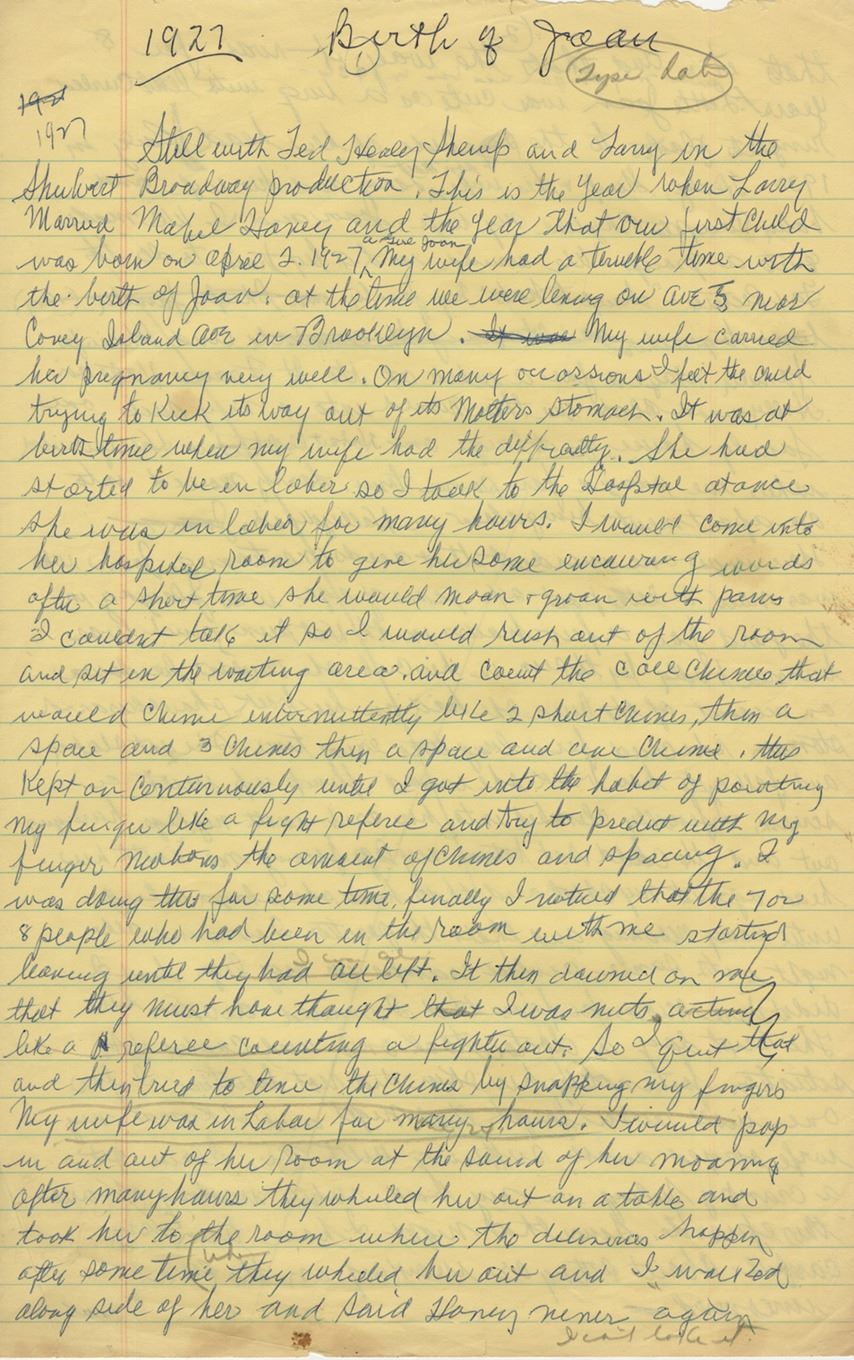 1927 Birth of Joan
(1)
Type
192
1927
Still with Ted Healy, Shemp and Larry in the
Shubert Broadway production. This is the year when Larry
Married Mabel Haney and the year that our first child
a Girl Joan
was born on April 2. 1927, My wife had a terrible time with
the birth of Joan. at the time we were living on Ave S near
Coney Island Ave in Brooklyn. It was My wife carried
her pregnancy very well. On many occassions I felt the child
trying to Kick its way out of its Mothers stomach. It was at
birth time when my wife had the difficulty. She had
started to be in laber so I took to the Hospital atance
she was in laber for many hours. I would come into
her hospital room to give her some encouring words
after a short time she would moan + groan with pains
I couldnt take it so I would rush out of the room
and sit in the waiting area. and count the call chimes that
would chime intermittently like 2 short chimes, then a
space and 3 chimes then a space and one chime. this
Kept on continuously until I got into the habit of pointing
my finger like a fight referee and try to predict with my
finger motions the amount of chimes and spacing. I
was doing this for some time, finally I noticed that the 7 or
8 people who had been in the room with me started
leaving until they had all left. It then dawned on me
that they must have thought that I was nuts, acting
like a referee counting a fighter out. So I quit that
and then tried to time the chimes by snapping my fingers
My wife was in Labar for many hours. I would pop
in and out of her room at the sound of her moaning
after many hours they wheeled her out on a table and
took her to the room where the deliveries happen
when
after some time, they wheeled her out and I walked
along side of her and said Honey never again
I can't take it.